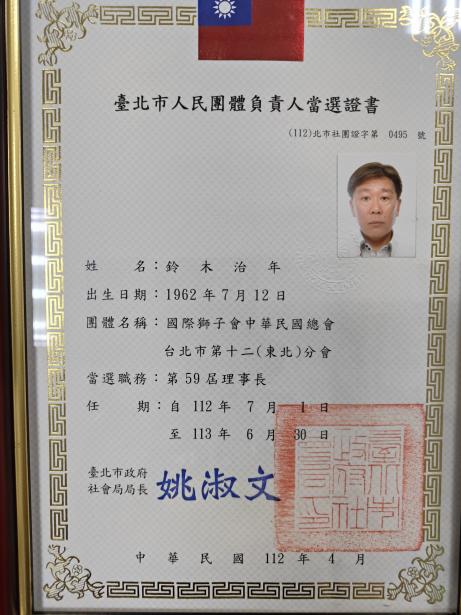 臺北市人民團體負責人當選證書
(112)北市社團證字第 0495 號
姓 名：鈴木治年
出生日期：1962年7月12日
團體名稱：國際獅子會中華民國總會
台北市第十二(東北)分會
當選職務：第59屆理事長
任 期：自 112 年 7 月 1 日
至 113 年 6 月 30 日
臺北市政府
社會局局長 姚淑文
臺北市政府社會局印
中華民國 112 年 4 月